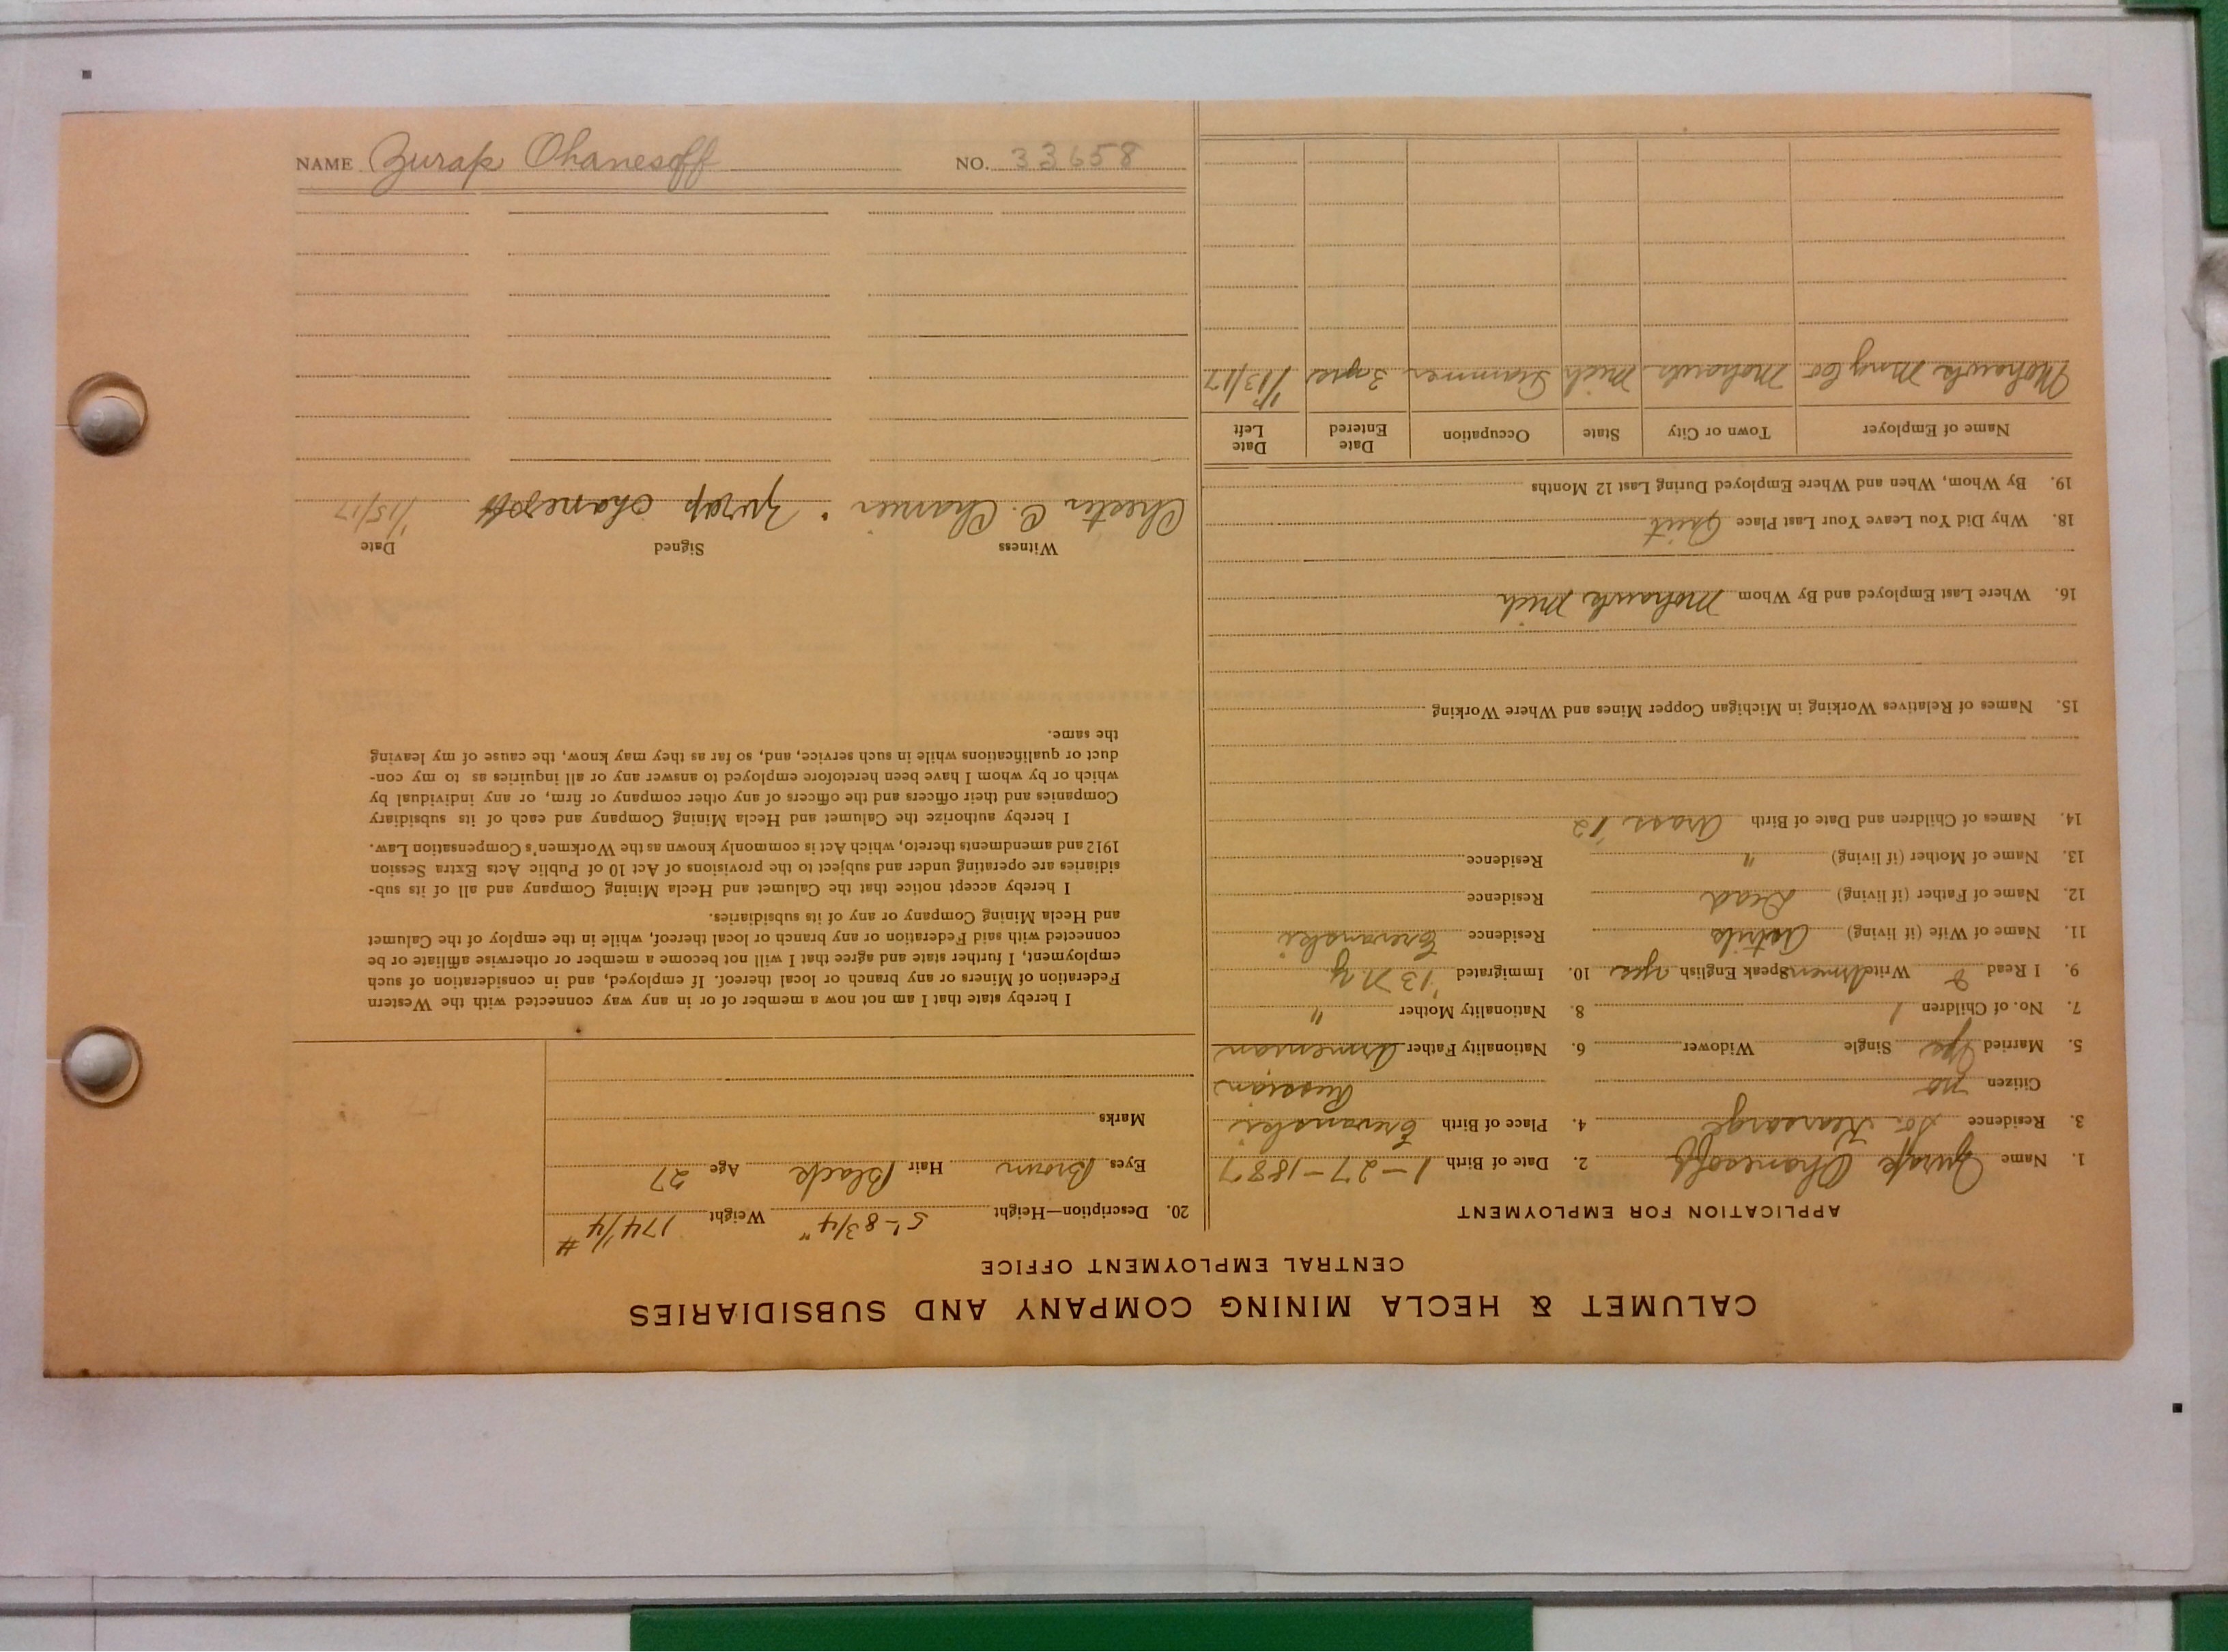 NAME Zurap Ohanesoff NO. 33658
CALUMET & HECLA MINING COMPANY AND SUBSIDIARIES
CENTRAL EMPLOYMENT OFFICE
APPLICATION FOR EMPLOYMENT
1. Name Zurap Ohanesoff 2. Date of Birth 1-27-1887
3. Residence So. Kearsarge 4. Place of Birth Erevanski
Citizen no Russian
5. Married Yes Single Widower 6. Nationality Father Armenian
7. No. of Children 1 8. Nationality Mother "
9. I Read & Write Armen Speak English yes 10. Immigrated '13 NY
11. Name of Wife (if living) Residence Erevanski
12. Name of Father (if living) Dead Residence
13. Name of Mother (if living) " Residence
14. Names of Children and Date of Birth '12
15. Names of Relatives Working in Michigan Copper Mines and Where Working
16. Where Last Employed and By Whom Mohawk Mich
18. Why Did You Leave Your Last Place Quit
19. By Whom, When and Where Employed During Last 12 Months
Name of Employer Town or City State Occupation Date Entered Date Left
Mohawk Mng Co Mohawk Mich Trammer 3 yrs 1/13/17
20. Description—Height 5'-8 3/4" Weight 174 1/4 #
Eyes Brown Hair Black Age 27
Marks
I hereby state that I am not now a member of or in any way connected with the Western
Federation of Miners or any branch or local thereof. If employed, and in consideration of such
employment, I further state and agree that I will not become a member or otherwise affiliate or be
connected with said Federation or any branch or local thereof, while in the employ of the Calumet
and Hecla Mining Company or any of its subsidiaries.
I hereby accept notice that the Calumet and Hecla Mining Company and all of its sub-
sidiaries are operating under and subject to the provisions of Act 10 of Public Acts Extra Session
1912 and amendments thereto, which Act is commonly known as the Workmen's Compensation Law.
I hereby authorize the Calumet and Hecla Mining Company and each of its subsidiary
Companies and their officers and the officers of any other company or firm, or any individual by
which or by whom I have been heretofore employed to answer any or all inquiries as to my con-
duct or qualifications while in such service, and, so far as they may know, the cause of my leaving
the same.
Witness Signed Date
Chester C. Zurap Ohanesoff 1/15/17